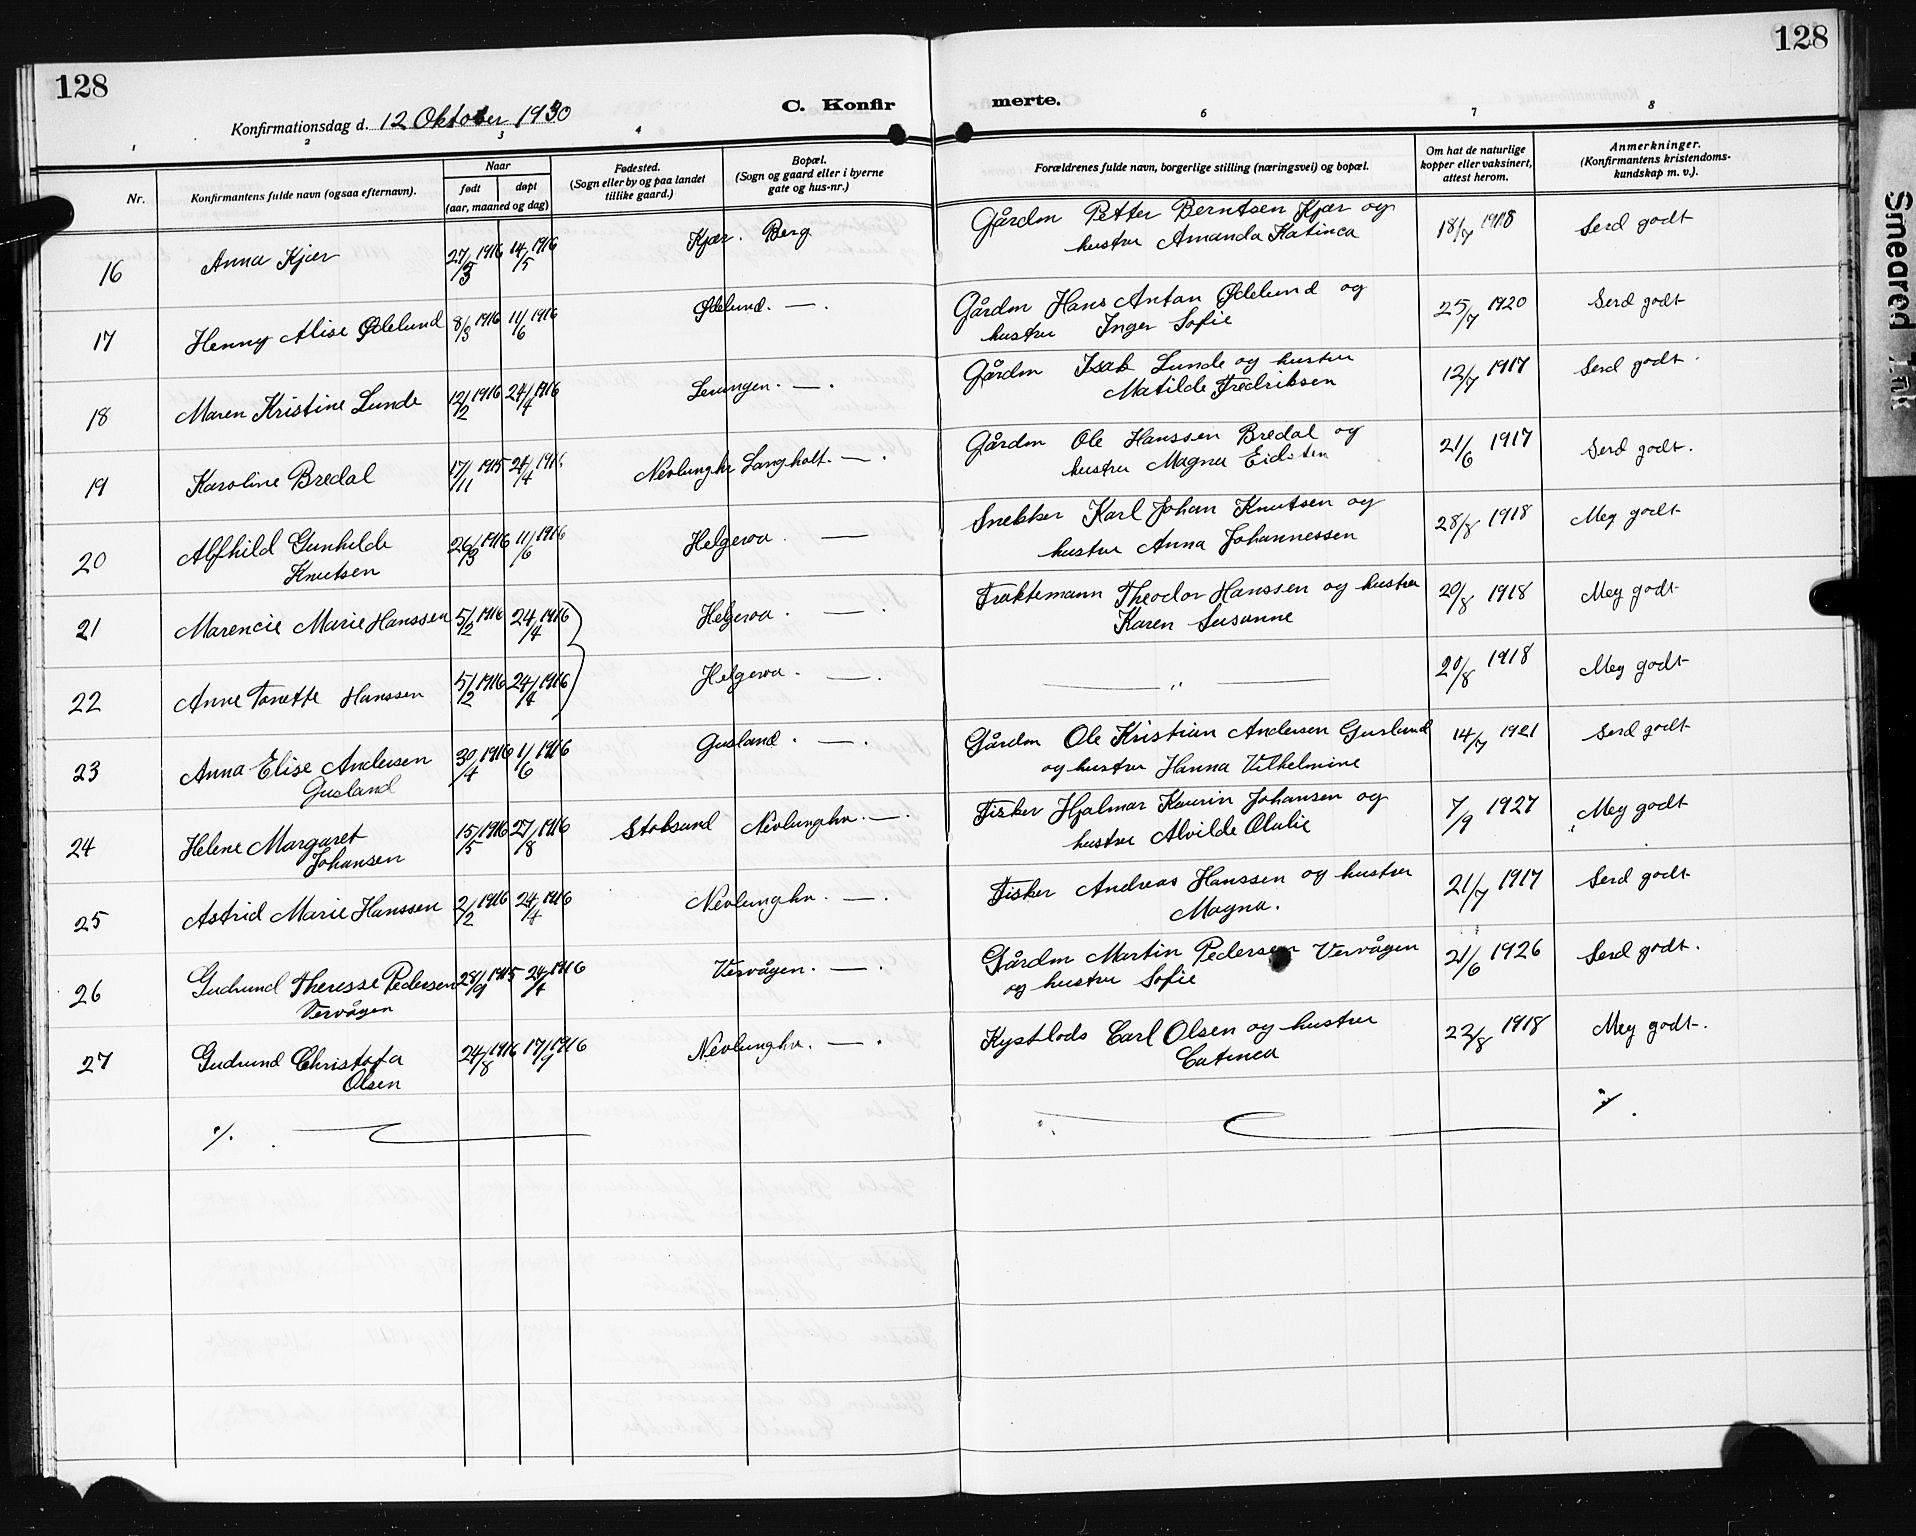 128
128
Konfirmationsdag d. 12 Oktober 1930
C. Konfir merte.
1 2 3 4 6 7 8
Nr.
Konfirmantens fulde navn (ogsaa efternavn).
Naar
født døpt
(aar, maaned og dag)
Fødested.
(Sogn eller by og paa landet
tillike gaard.)
Bopæl.
(Sogn og gaard eller i byerne
gate og hus-nr.)
Forældrenes fulde navn, borgerlige stilling (næringsvei) og bopæl.
Om hat de naturlige
kopper eller vaksinert,
attest herom.
Anmerkninger.
(Konfirmantens kristendoms-
kundskap m. v.).
16 Anna Kjær 27/3 1916 14/5 1916 Kjær. Berg Gårdm Petter Berntsen Kjær og 18/7 1918 Serd godt
hustru Amanda Katinca
17 Henny Alise Ødelund 8/3 1916 11/6 1916 Ødelund. — . Gårdm Hans Antan Ødelund og 25/7 1920 Serd godt
hustru Inger Sofie
18 Maren Kristine Lunde 12/2 1916 24/4 1916 Leungen. — . Gårdm Isak Lunde og hustru 12/7 1917 Serd godt.
Matilde Fredriksen
19 Karoline Bredal 17/11 1915 24/4 1916. Nevlunghv Langholt. — . Gårdm Ole Hanssen Bredal og 21/6 1917 Serd godt.
hustru Magna Eidsten
20 Alfhild Gunhilde 26/3 1916 11/6 1916 Helgeroa. — Snekker Karl Johan Knutsen og 28/8 1918 Meg godt
Knutsen hustru Anna Johannessen
21 Marencie Marie Hanssen 5/2 1916 24/4 1916 Helgeroa. — . Fraktemann Theodor Hanssen og hustru 20/8 1918 Meg godt
Karen Susanne
22 Anne Tonette Hanssen 5/2 1916 24/4 1916 Helgeroa. — . — " — 20/8 1918 Meg godt
23 Anna Elise Andersen 30/4 1916 1/6 1916 Gusland. — . Gårdm Ole Kristian Andersen Gusland 14/7 1921 Serd godt
Gusland og hustru Hanna Vilhelmine
24 Helene Margaret 15/5 1916 27/8 1916 Stoksund Nevlunghv. — . Fisker Hjalmar Kaurin Johansen og 7/9 1927 Meg godt
Johansen hustru Alvilde Olulie
25 Astrid Marie Hanssen 2/2 1916 24/4 1916 Nevlunghv. — . Fisker Andreas Hanssen og hustru 21/7 1917 Serd godt
Magna.
26 Gudrund Theresse Pedersen 28/9 1915 24/4 1916 Vervågen. — . Gårdm Martin Pedersen Vervågen 21/6 1926 Serd godt.
Vervågen og hustru Sofie
27 Gudrund Christofa 24/8 1916 17/9 1916 Nevlunghv. — . Kystlods Carl Olsen og hustru 22/8 1918 Meg godt.
Olsen Catinca
./.
Smeared